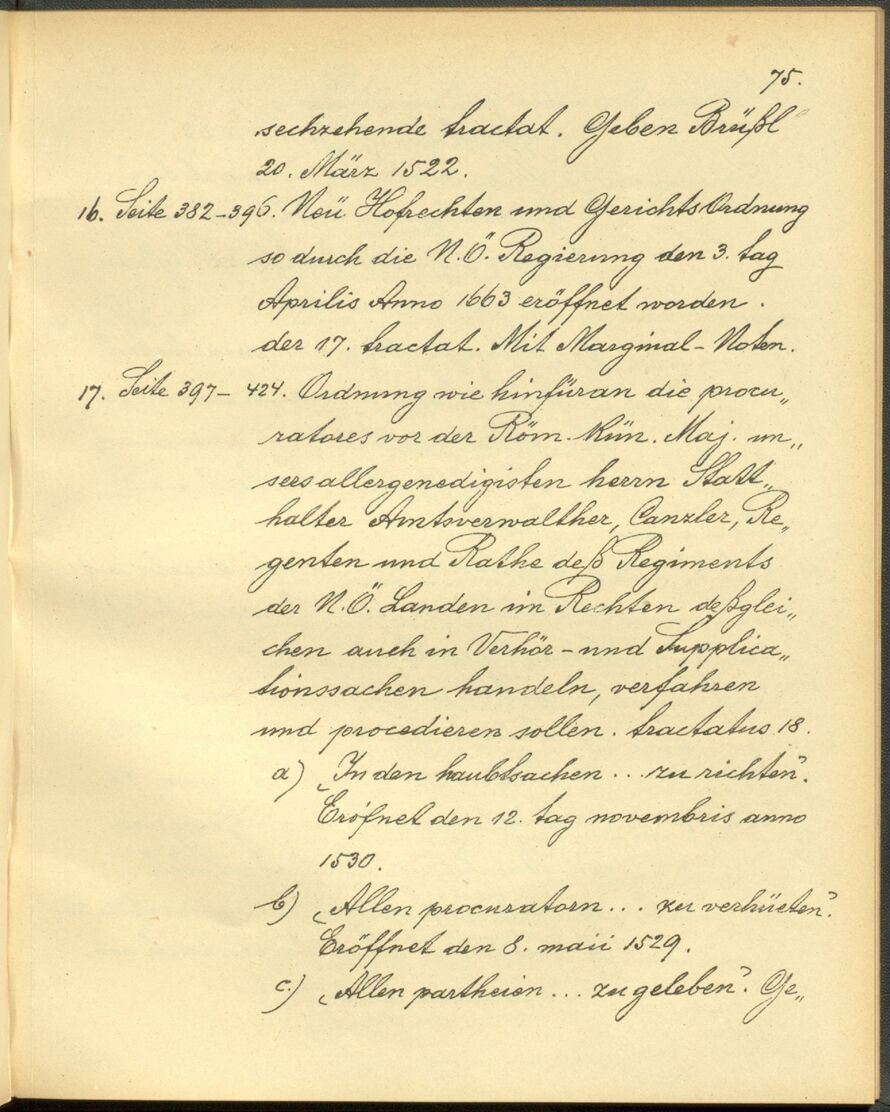 75.
sechzehende tractat. Geben Brüßl
20. März 1522.
16. Seite 382-396. Neü Hofrechten und GerichtsOrdnung
so durch die N.Ö. Regierung den 3. tag
Aprilis Anno 1663 eröffnet worden.
der 17. tractat. Mit Marginal-Noten.
17. Seite 397-424. Ordnung wie hinfüran die procu„
ratores vor der Röm. Kün. Maj. un„
sers allergenedigisten herrn Statt„
halter Amtsverwalther, Canzler, Re„
genten und Rathe deß Regiments
der N.Ö. Landen im Rechten deßglei„
chen auch in Verhör- und Supplica„
tionssachen handeln, verfahren
und procedieren sollen. tractatus 18.
a) „In den haubtsachen ... zu richten“.
Eröfnet den 12. tag novembris anno
1530.
b) „Allen procuratorn ... zu verhüeten“.
Eröffnet den 8. maii 1529.
c.) „Allen partheien ... zu geleben“. Ge„